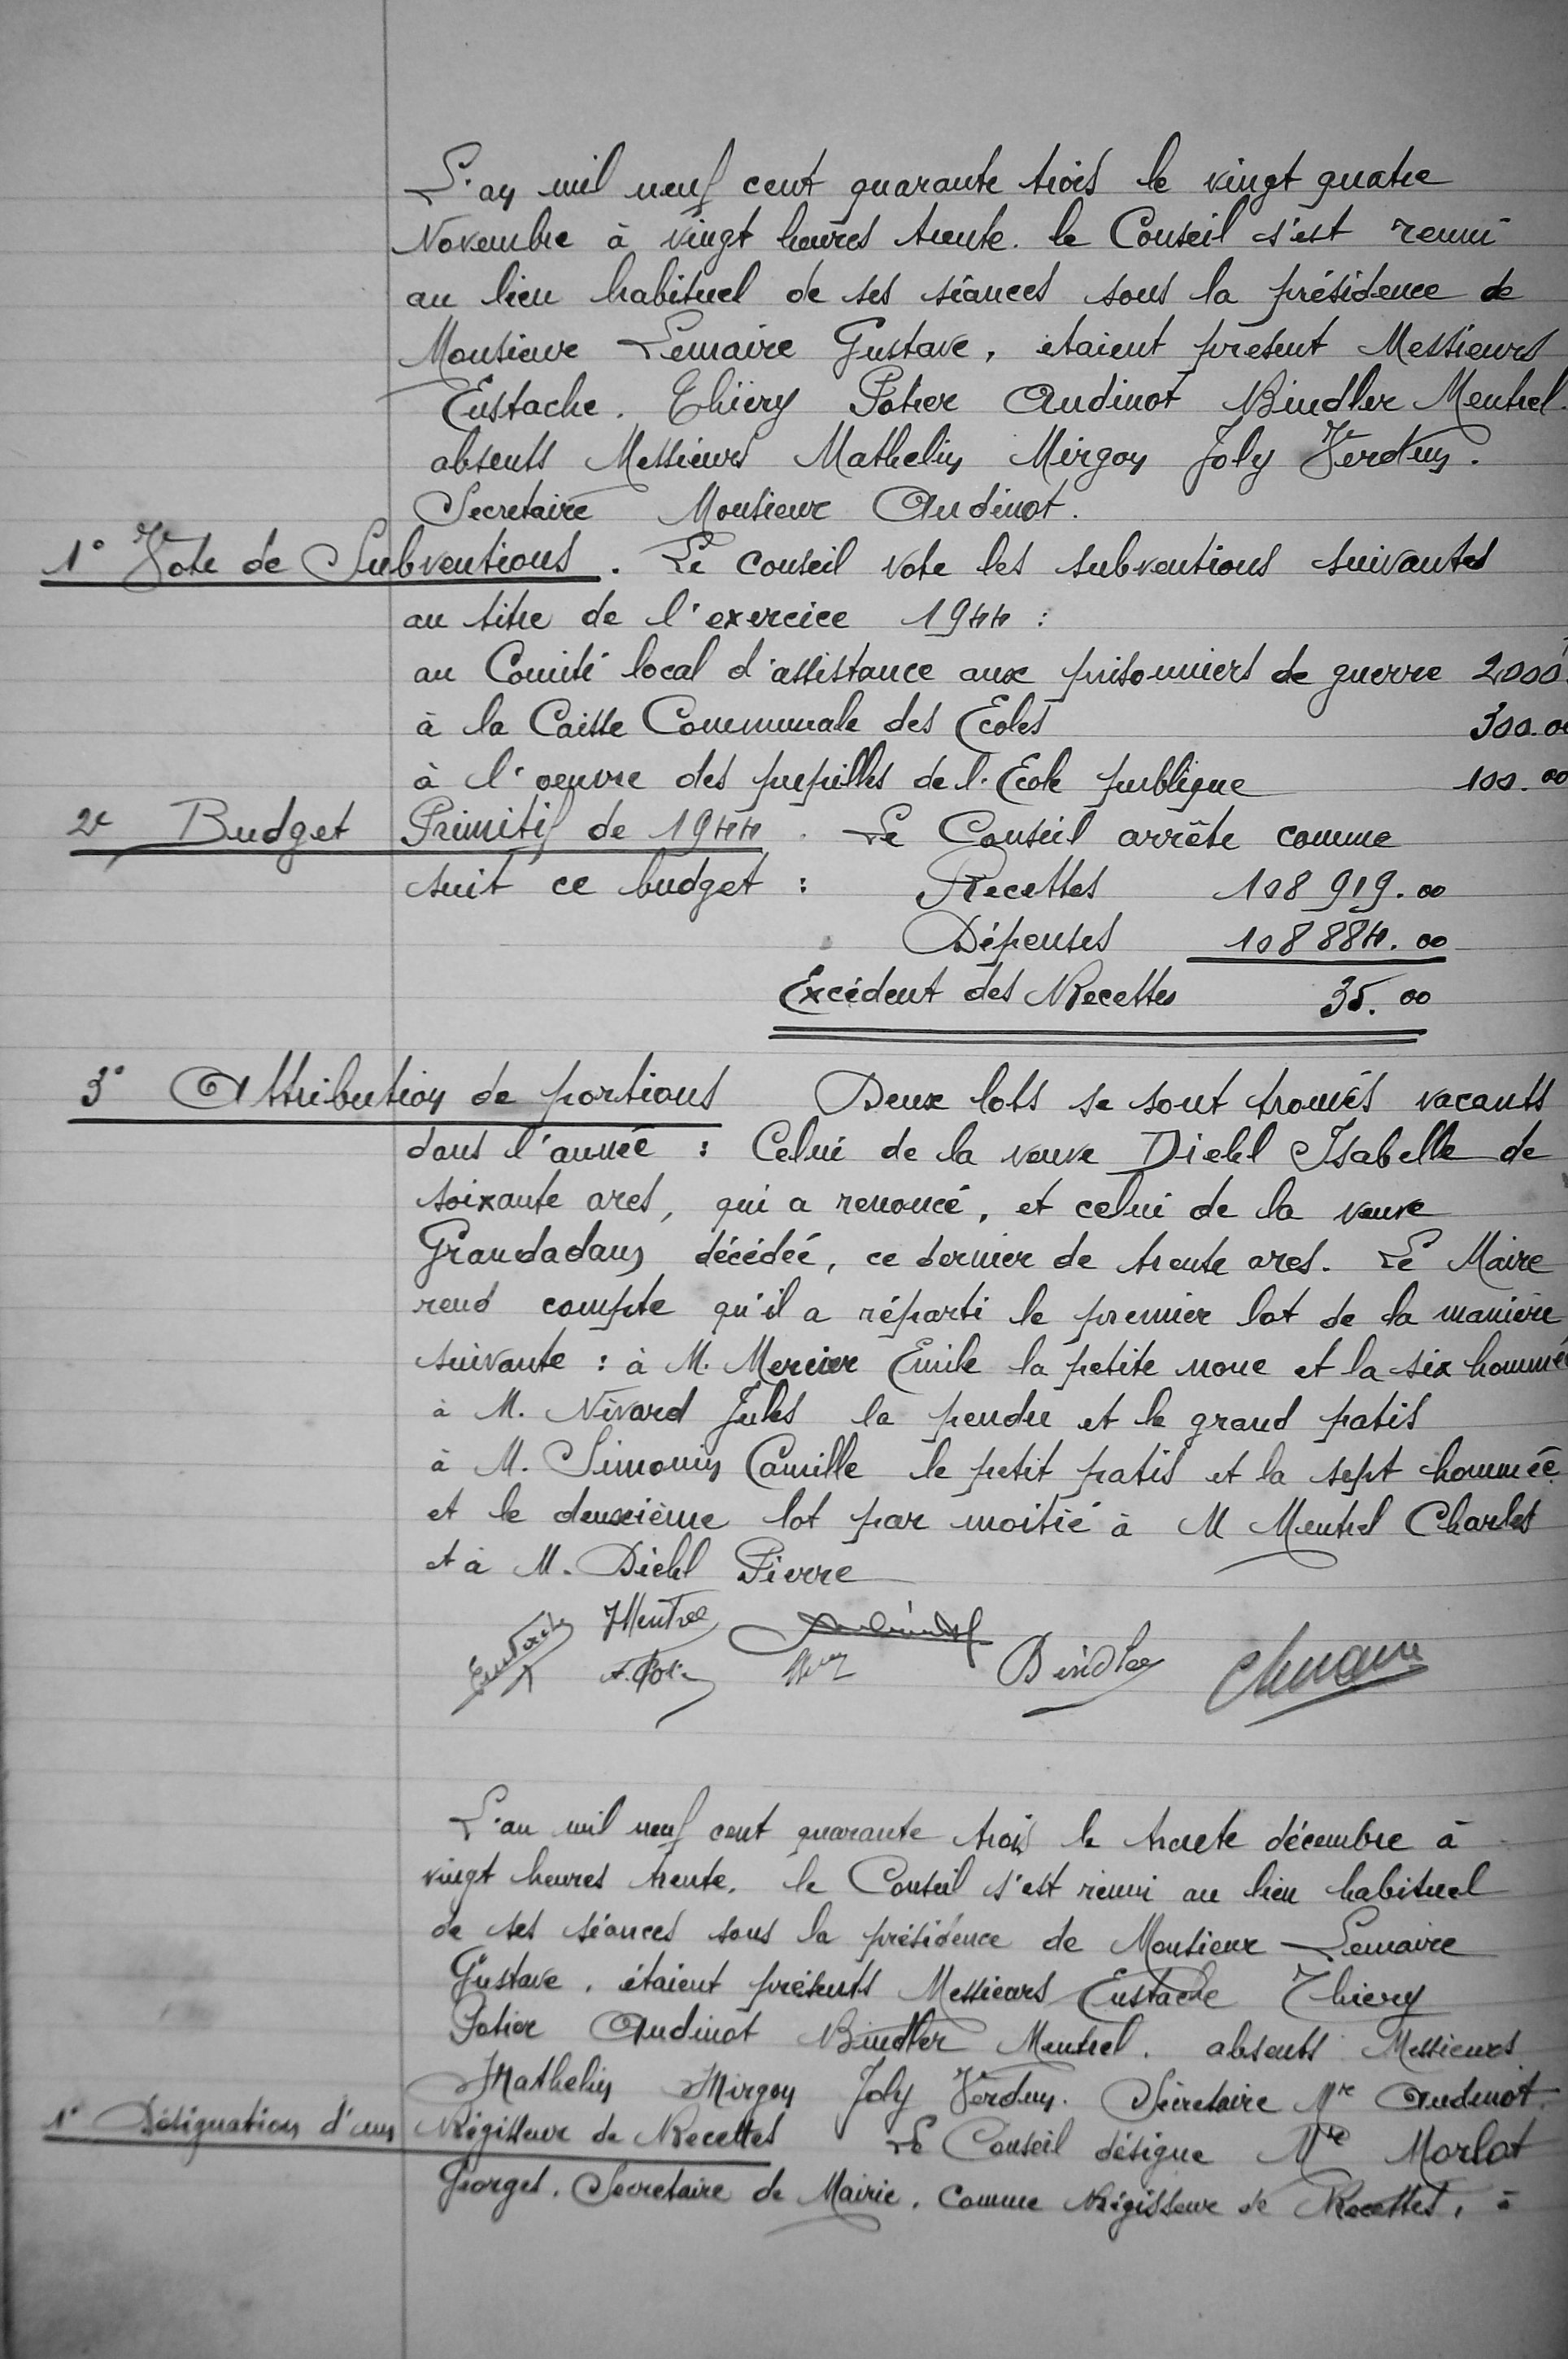 L'an mil neuf cent quarante trois le vingt quatre
Novembre à vingt heures trente. le Conseil s'est reuni
au lieu habituel de ses séances sous la présidence de
Monsieur Lemaire Gustave, etaient présent Messieurs
Eustache. Thiery Potier Audinot Bindler Mentrel.
absents Messieurs Mathelin Mirgon Joly Verdun.
Secretaire Monsieur Audinot.
1° Vote de Subventions. Le conseil vote les subventions suivantes
au titre de l'exercice 1944 :
au Comité local d'assistance aux prisonniers de guerre 2000.
à la Caisse Communale des Ecoles 300.00
à l'oeuvre des pupilles de l'Ecole publique 100.00
2e Budget Primitif de 1944. Le Conseil arrête comme
suit ce budget : Recettes 108 919.00
Dépenses 108 884.00
Excédent des Recettes 35.00
3° Attribution de portions Deux lots se sont trouvés vacants
dans l'année : Celui de la veuve Diehl Isabelle de
soixante ares, qui a renoncé, et celui de la veuve
Grandadam décédeé, ce dernier de trente ares. Le Maire
rend compte qu'il a réparti le premier lot de la manière
suivante : à M. Mercier Emile la petite noue et la six hommée
à M. Nivard Jules la pendu et le grand patis
à M. Simonin Camille le petit patis et la sept hommée
et le deuxième lot par moitié à M Mentrel Charles
et à M. Diehl Pierre
Eustache Mentrel Audinot
Bindler
L'an mil neuf cent quarante trois le trente décembre à
vingt heures trente. le Conseil s'est réuni au lieu habituel
de ses séances sous la présidence de Monsieur Lemaire
Gustave. étaient présents Messieurs Eustache Thiery
Potier Audinot Bindler Mentrel. absents Messieurs
Mathelin Mirgon Joly Verdun. Sécretaire Mr Audinot.
1° Désignation d'un Régisseur de Recettes Le Conseil désigne Mr Morlot
Georges. Secretaire de Mairie. comme Régisseur de Recettes, à